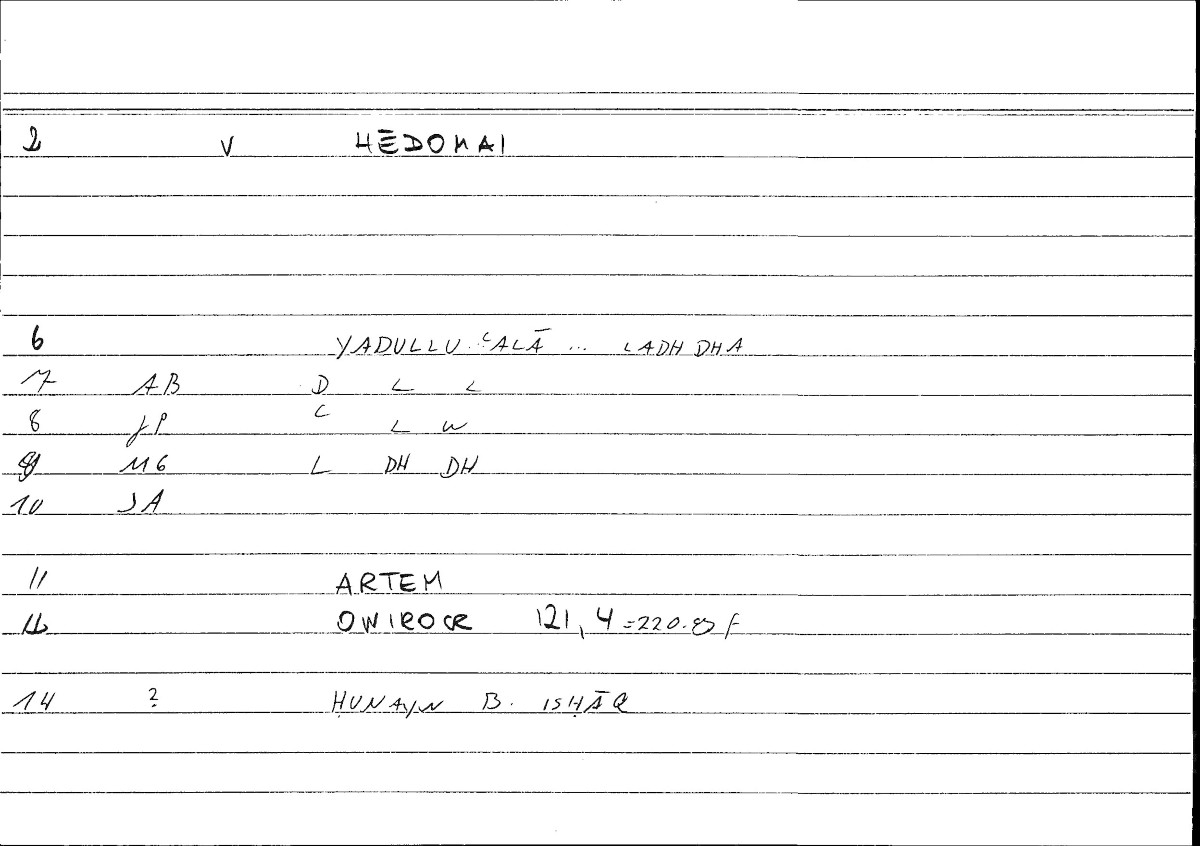 2 V HĒDOMAI
6 YADULLU ʿALĀ ... LADHDHA
7 AB D L L
8 JP ʿ L W
9 MG L DH DH
10 JA
11 ARTEM
ONIROCR 121, 4 = 220.9 f
14 ? ḤUNAYN B. ISḤĀQ